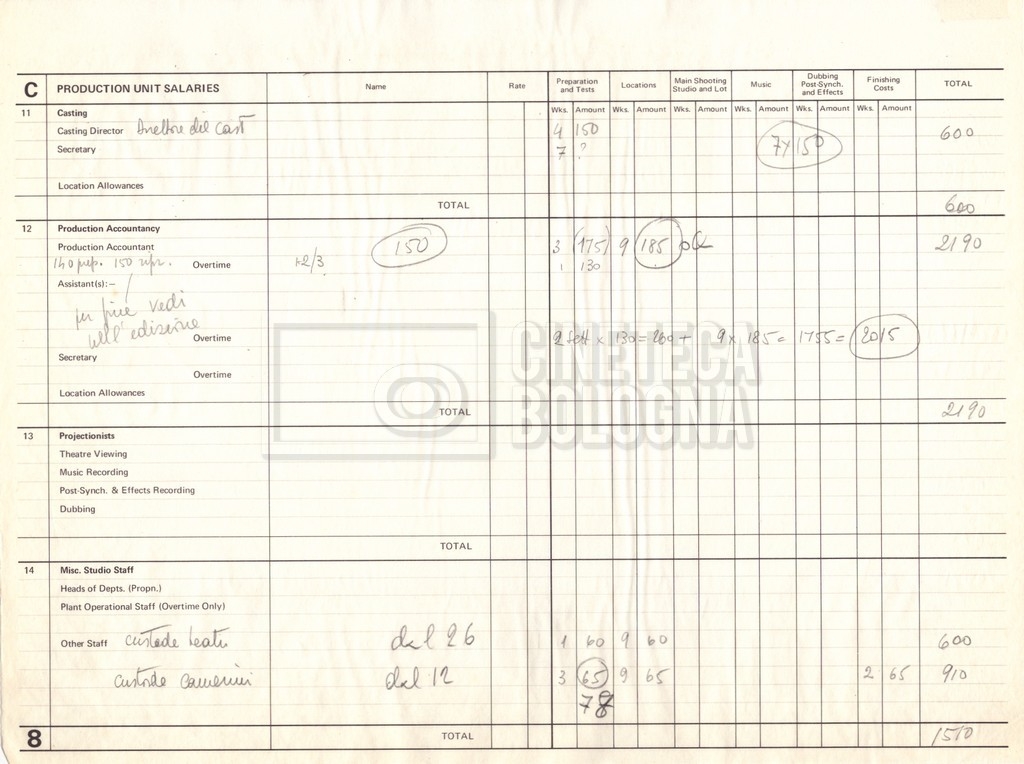 C PRODUCTION UNIT SALARIES Name Rate Preparation and Tests Locations Main Shooting Studio and Lot Music Dubbing Post-Synch. and Effects Finishing Costs TOTAL
11 Casting Wks. Amount Wks. Amount Wks. Amount Wks. Amount Wks. Amount Wks. Amount
Casting Director Direttore del Cast 4 150 600
Secretary 7 ? 7 x 150
Location Allowances
TOTAL 600
12 Production Accountancy
Production Accountant 150 3 (175) 9 185 ok 2190
140 prep. 150 ripr. Overtime 1 130
Assistant(s):—
per fine vedi
nell'edizione
Overtime 2 sett x 130 = 260 + 9 x 185 = 1755 = 2015
Secretary
Overtime
Location Allowances
TOTAL 2190
CINETECA
BOLOGNA
13 Projectionists
Theatre Viewing
Music Recording
Post-Synch. & Effects Recording
Dubbing
TOTAL
14 Misc. Studio Staff
Heads of Depts. (Propn.)
Plant Operational Staff (Overtime Only)
Other Staff custode teatro dal 26 1 60 9 60 600
custode camerini dal 12 3 65 9 65 2 65 910
78
8 TOTAL 1510